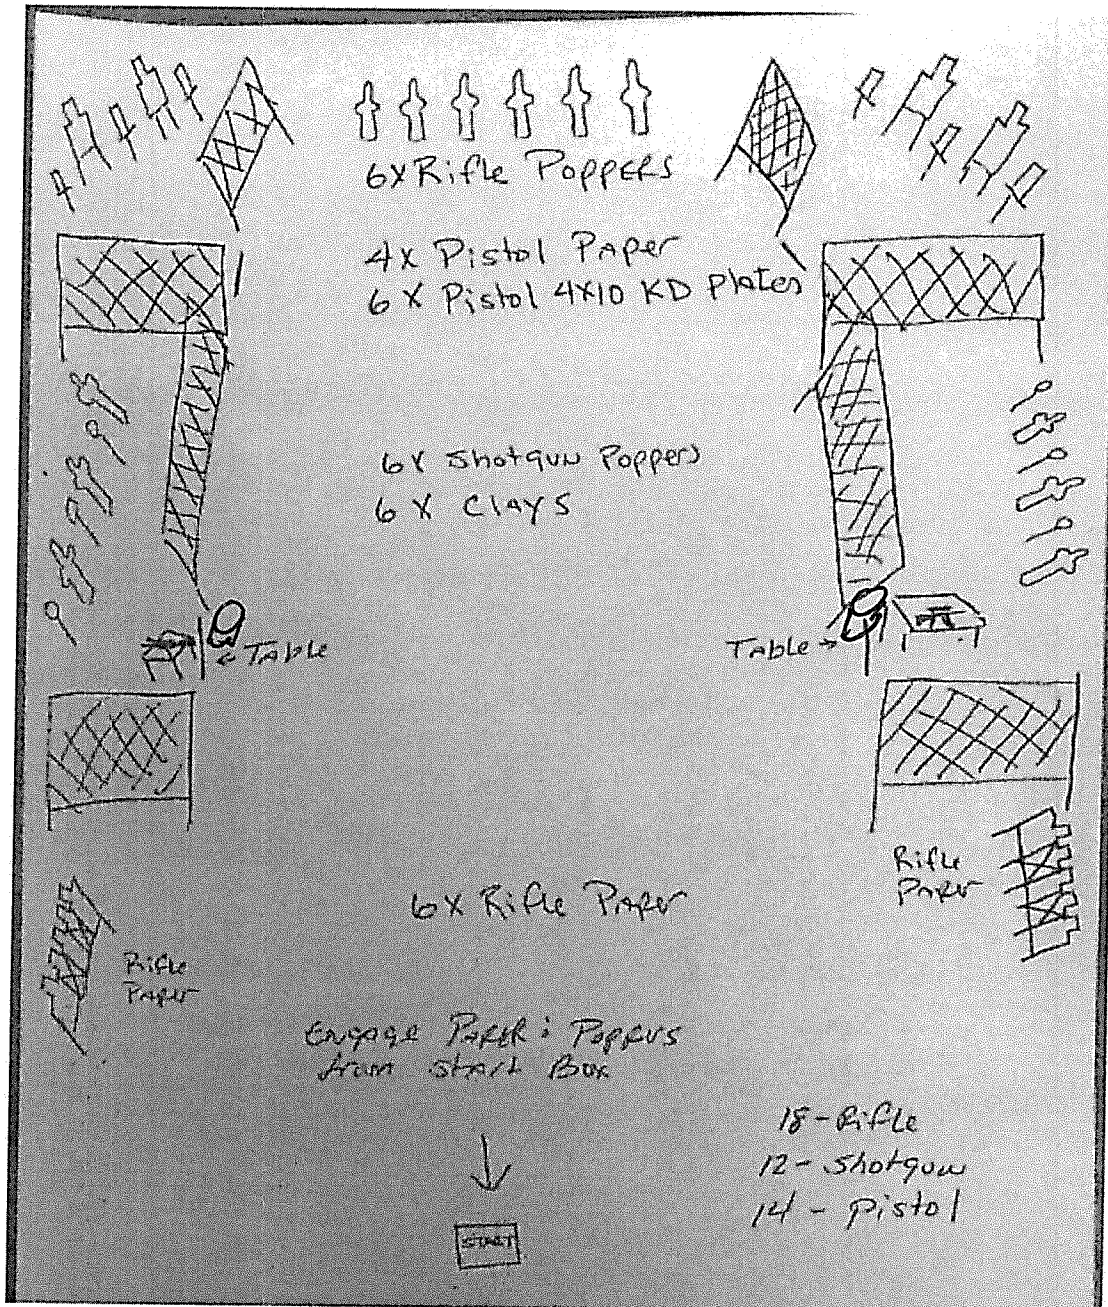 6X Rifle Poppers
4X Pistol Paper
6 X Pistol 4X10 KD Plates
6X Shotgun Poppers
6 X Clays
← Table
Table →
Rifle
Paper
6X Rifle Paper
Rifle
Paper
Engage Paper & Poppers
from Start Box
18 - Rifle
12 - Shotgun
14 - Pistol
START